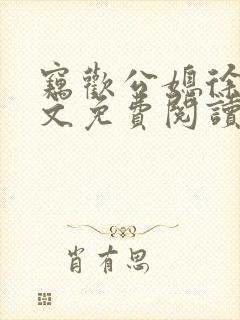 竊歡公媳徐
文免費閱讀
肖有思